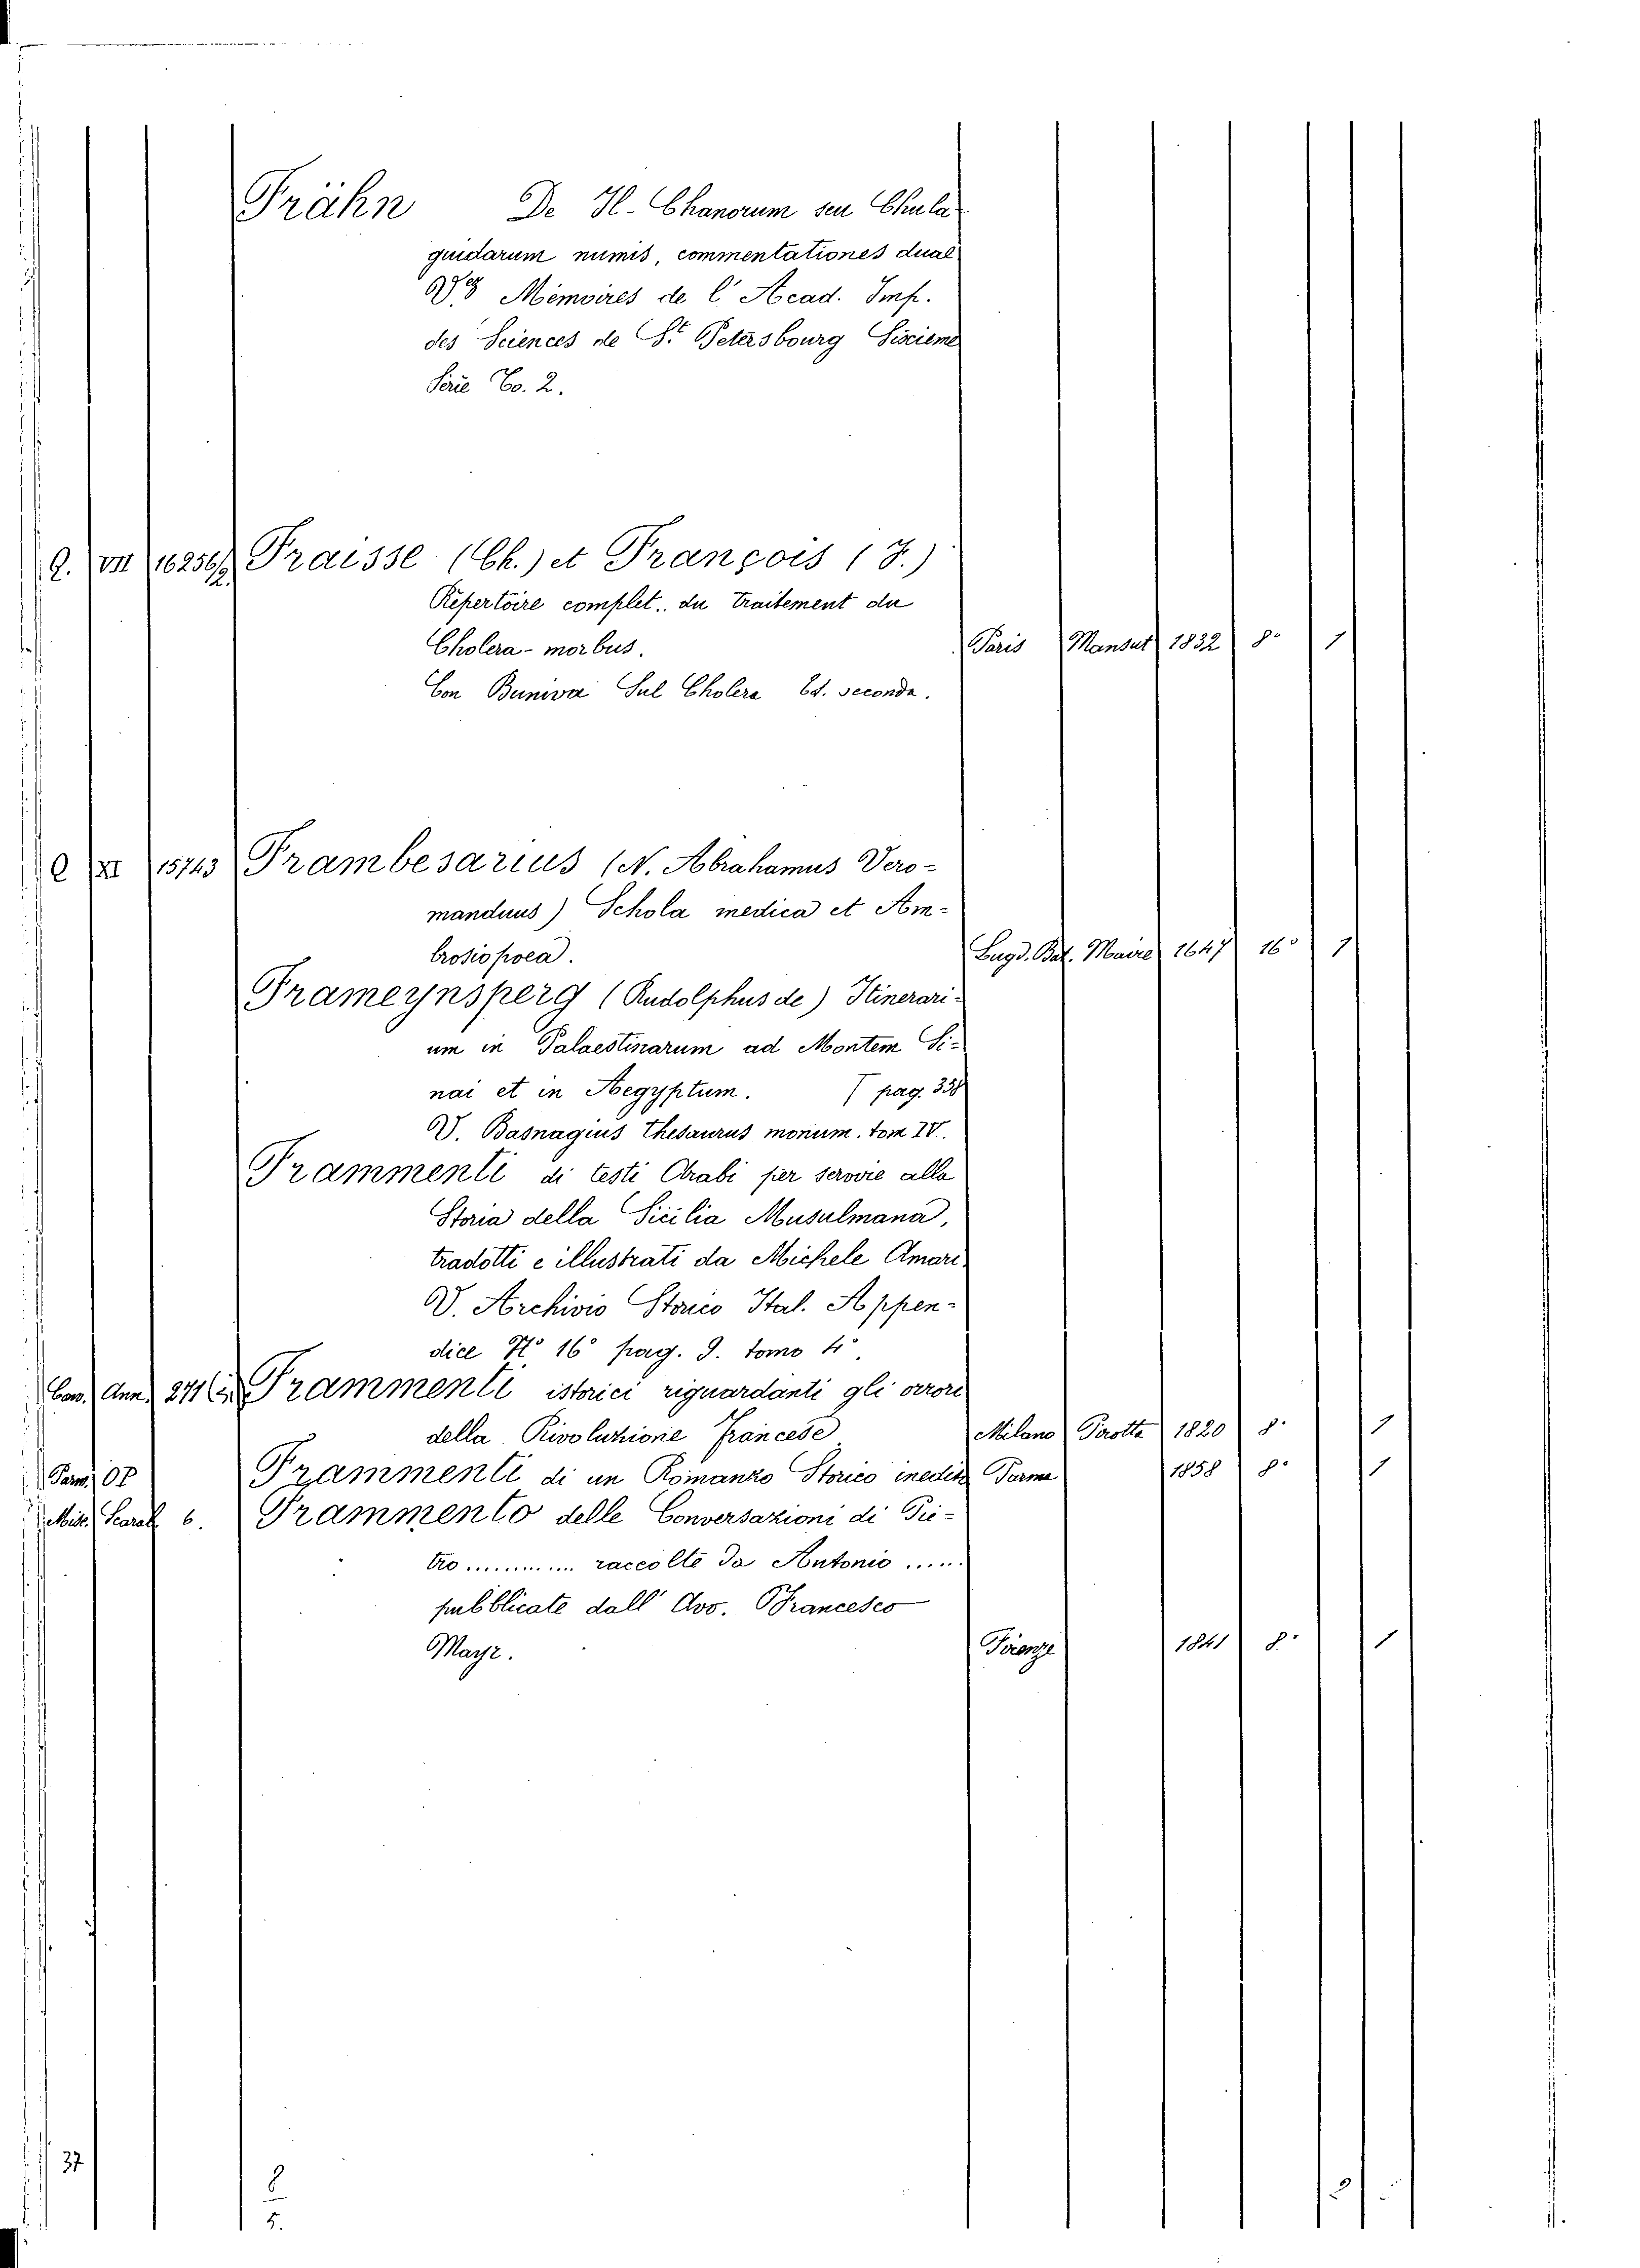 Frähn De Il-Chanorum seu Chula-
guidarum numis, commentationes duae
V. Mémoires de l'Acad. Imp.
des Sciences de St. Petersbourg Siscieme
Série To. 2.
Q. VII 16256/2 Fraisse (Ch.) et François (F.)
Répertoire complet.. du traitement du
Cholera-morbus. Paris Mansut 1832 8° 1
Con Buniva Sul Cholera Ed. seconda.
Q XI 15743 Frambesarius (N. Abrahamus Vero-
manduus) Schola medica et Am-
brosiopoea. Lugd. Bat. Maire 1647 16° 1
Frameynsperg (Rudolphus de) Itinerari-
um in Palaestinarum ad Montem Si-
nai et in Aegyptum. pag. 358
V. Basnagius Thesaurus monum. tom IV.
Frammenti di testi Arabi per servire alla
Storia della Sicilia Musulmana,
tradotti e illustrati da Michele Amari.
V. Archivio Storico Ital. Appen-
dice N° 16° pag. 9. tomo 4°.
Can. Ann. 271 Frammenti istorici riguardanti gli orrori
della Rivoluzione Francese Milano Pirotta 1820 8° 1
Parm. Frammenti di un Romanzo Storico inedito Parma 1858 8° 1
Misc. Scarab. 6. Frammento delle Conversazioni di Pie-
tro ........... raccolte da Antonio ......
pubblicate dall' Avv. Francesco
Mayr. Firenze 1841 8° 1
37
8
5.
3